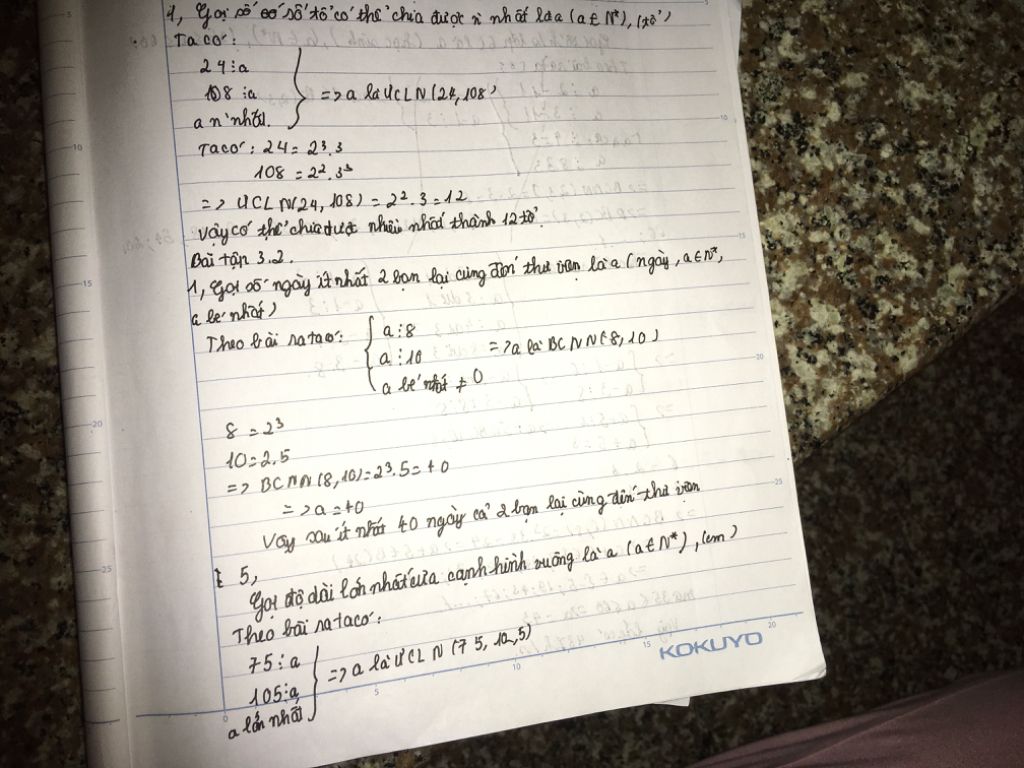 1, Gọi số số tổ có thể chia được n nhất là a (a ∈ N*), (tổ)
Ta có:
24 ⋮ a
108 ⋮ a
a n nhất.
=> a là ƯCLN (24, 108)
Ta có: 24 = 2³.3
108 = 2².3³
=> ƯCLN (24, 108) = 2².3 = 12
Vậy có thể chia được nhiều nhất thành 12 tổ.
Bài tập 3.2.
1, Gọi số ngày ít nhất 2 bạn lại cùng đến thư viện là a (ngày, a ∈ N*,
a bé nhất)
Theo bài ra ta có:
a ⋮ 8
a ⋮ 10
a bé nhất ≠ 0
=> a là BCNN (8, 10)
8 = 2³
10 = 2.5
=> BCNN (8, 10) = 2³.5 = 40
=> a = 40
Vậy sau ít nhất 40 ngày cả 2 bạn lại cùng đến thư viện
5,
Gọi độ dài lớn nhất của cạnh hình vuông là a (a ∈ N*), (cm)
Theo bài ra ta có:
75 ⋮ a
105 ⋮ a
a lớn nhất
=> a là ƯCLN (75, 105)
KOKUYO